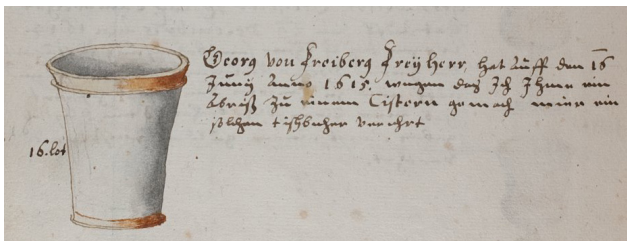 Georg von Freiberg Freÿ Herr, hat Auff den 16
Junij Anno 1615. wegen das Ich Ihme ein
Abriß Zu einem Cistern gemach mier ein
solchen tischbecher verehrt
16. lot